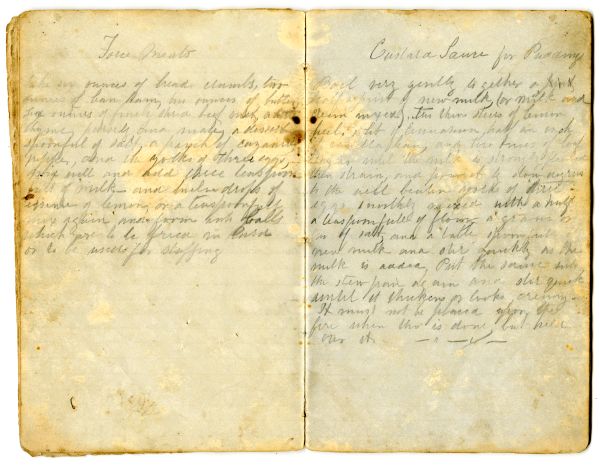 Force Meats
six ounces of bread crumbs, two
ounces of ham, six ounces of butter
six ounces of
thyme, and mace, a dessert
spoonful of salt, a pinch of cayenne
and the yolks of three eggs,
well and add three teaspoon
of milk and twelve drops of
essence of lemon or a teaspoonful of
again and form into balls
which are to be fried in lard
or to be used for stuffing
Custard Sauce for Pudding
Boil very gently together a XXX
half pint of new milk (or milk and
cream mixed), ten thin slices of lemon
peel, a bit of cinnamon, half an inch
of and two ounces of loaf
sugar until the milk is strongly flavored
then strain, and pour it by slow degrees
to the well beaten yolks of three
eggs smoothly mixed with a half
a teaspoonful of flour, a grain or
so of salt, and a table spoonful
new milk and stir quickly as the
milk is added, Put the sauce into
the stew pan again and stir quick
until it thickens, or looks creamy.
It must not be placed upon the
fire when this is done, but held
over it.